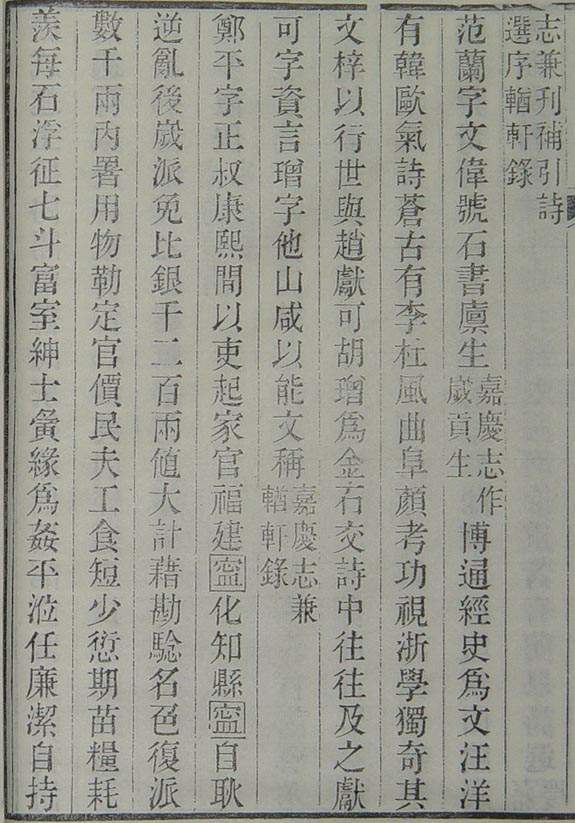 志兼刊補引詩
選序輶軒錄
范蘭字文偉號石書廪生嘉慶志作歲貢生博通經史爲文汪洋
有韓歐氣詩蒼古有李杜風曲阜顏考功視浙學獨奇其
文梓以行世與趙獻可胡璔爲金石交詩中往往及之獻
可字資言璔字他山咸以能文稱嘉慶志兼輶軒錄
鄭平字正叔康熙間以吏起家官福建寍化知縣寍自耿
逆亂後歲派免比銀千二百兩値大計藉勘騐名色復派
數千兩內署用物勒定官價民夫工食短少愆期苗糧耗
羡每石浮征七斗富室紳士夤緣爲姦平涖任廉潔自持